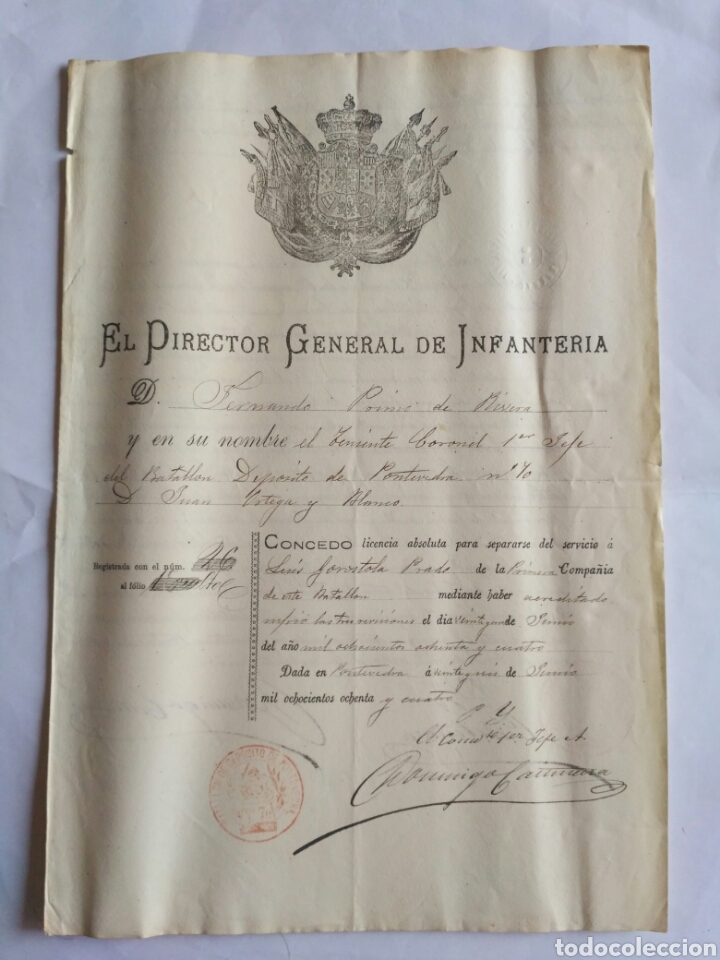 EL DIRECTOR GENERAL DE INFANTERIA
D. Fernando Primo de Rivera
y en su nombre el Teniente Coronel 1er Jefe
del Batallon Deposito de Pontevedra nº 70
D Juan Ortega y Blanco
CONCEDO licencia absoluta para separarse del servicio á
Registrada con el núm. 46
Luis Prado de la Primera Compañia
al fólio
de este Batallon mediante haber acreditado
las tres revisiones el dia veintiuno de Junio
del año mil ochocientos ochenta y cuatro
Dada en Pontevedra á de Junio
mil ochocientos ochenta y cuatro
El Comte 1er Jefe A
Domingo
todocoleccion